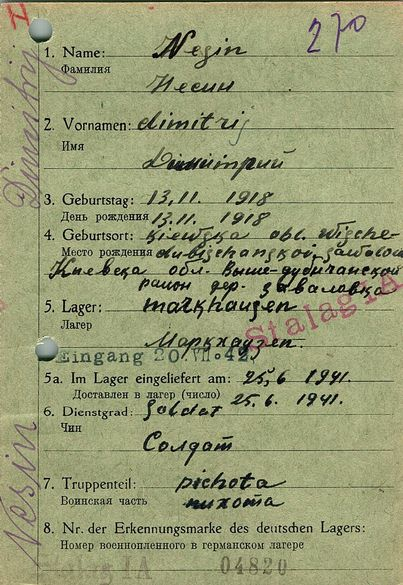 270
Dimitrij
1. Name: Nesin
Фамилия
Несин
2. Vornamen: dimitrij
Имя
Димитрий
3. Geburtstag: 13.11. 1918
День рождения 13.11. 1918
4. Geburtsort: kiewska obl. wische-
Место рождения dubischanskoi
Киевска обл. Выше-дубичанской
район дер. Заваловка
5. Lager: markhausen
Лагерь
Маркхаузен.
Stalag IA
Eingang 20. VII. 42
5a. Im Lager eingeliefert am: 25,6 1941.
Доставлен в лагерь (число) 25.6 1941.
6. Dienstgrad: Soldat
Чин
Солдат
7. Truppenteil: pichota
Воинская часть пихота
Nesin
8. Nr. der Erkennungsmarke des deutschen Lagers:
Номер военнопленного в германском лагере
Stalag IA 04820